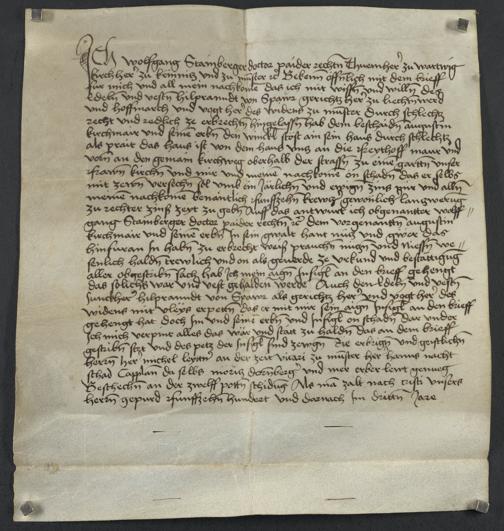 Ich wolfgang Stainberger doctor paider rechten Thuemher zu
kirchher zu und zu münster Bekenn offnlich mit dem brieff
fur mich und all mein nachkome das ich mit wissn und willn des
Edeln und vestn hilprandt von Spaur gerichtz her zu
und hoffmarch und vogt her des widens zu münster durch schlechtz
recht und redlich ze erbrechtn hingelassn hab dem beschaidn augustin
kirchmair und seine erbn den winckl stost ain sein haus durch schlechtz
als prait das haus ist von dem haus uns an die maur und
vorn an den gemain kirchweg oberhalb der strassn zu eine gartn unser
frawn kirchn und mir und meine nachkome on schadn das er selbs
mit zewn versechn sol umb ein Jarlichn und ewign zins mir und alln
meinen nachkome benantlich funfzehn kreucz gewonlich
zu rechter zins zeyt zu gebn Auff das antwurt ich obgenanter wolf
gang Stainberger doctor paider rechtn dem vorgenantn augustin
kirchmair und seine erbn in sein gwalt hant nucz und gwere das
hinfuran in habn zu erbrecht weis prauchn nuczn und niessn we
senlich haldn trewlich und on als geverde ze urkund und bestatigug
aller obgeschribn sach hab Ich mein aign Insigl an den brieff gehengt
das solichs war und vest gehaldn werde Auch den Edeln und vestn
Junckher hilprandt von Spaur als gerichtz her und vogt her des
widens mit vleys erpetn das er mit mir sein aign Insigl an den brieff
gehengt hat doch Im und seine erbn und Insigl on schadn dar under
Ich mich verpint alles das war und stat zu haldn das an dem brieff
geschribn stet und des pet der Insigl sind zewgn Die erbern und geistlichn
herrn her michel an der zeit vicari zu münster her hanns
Caplan da selbs moritz dornberger und mer erber lewt genueg
Beschechn an der zwelff potn thidug Als ma zalt nach cristi unsers
herrn gepurd funffzehn hundert und darnach Im drittn Jare